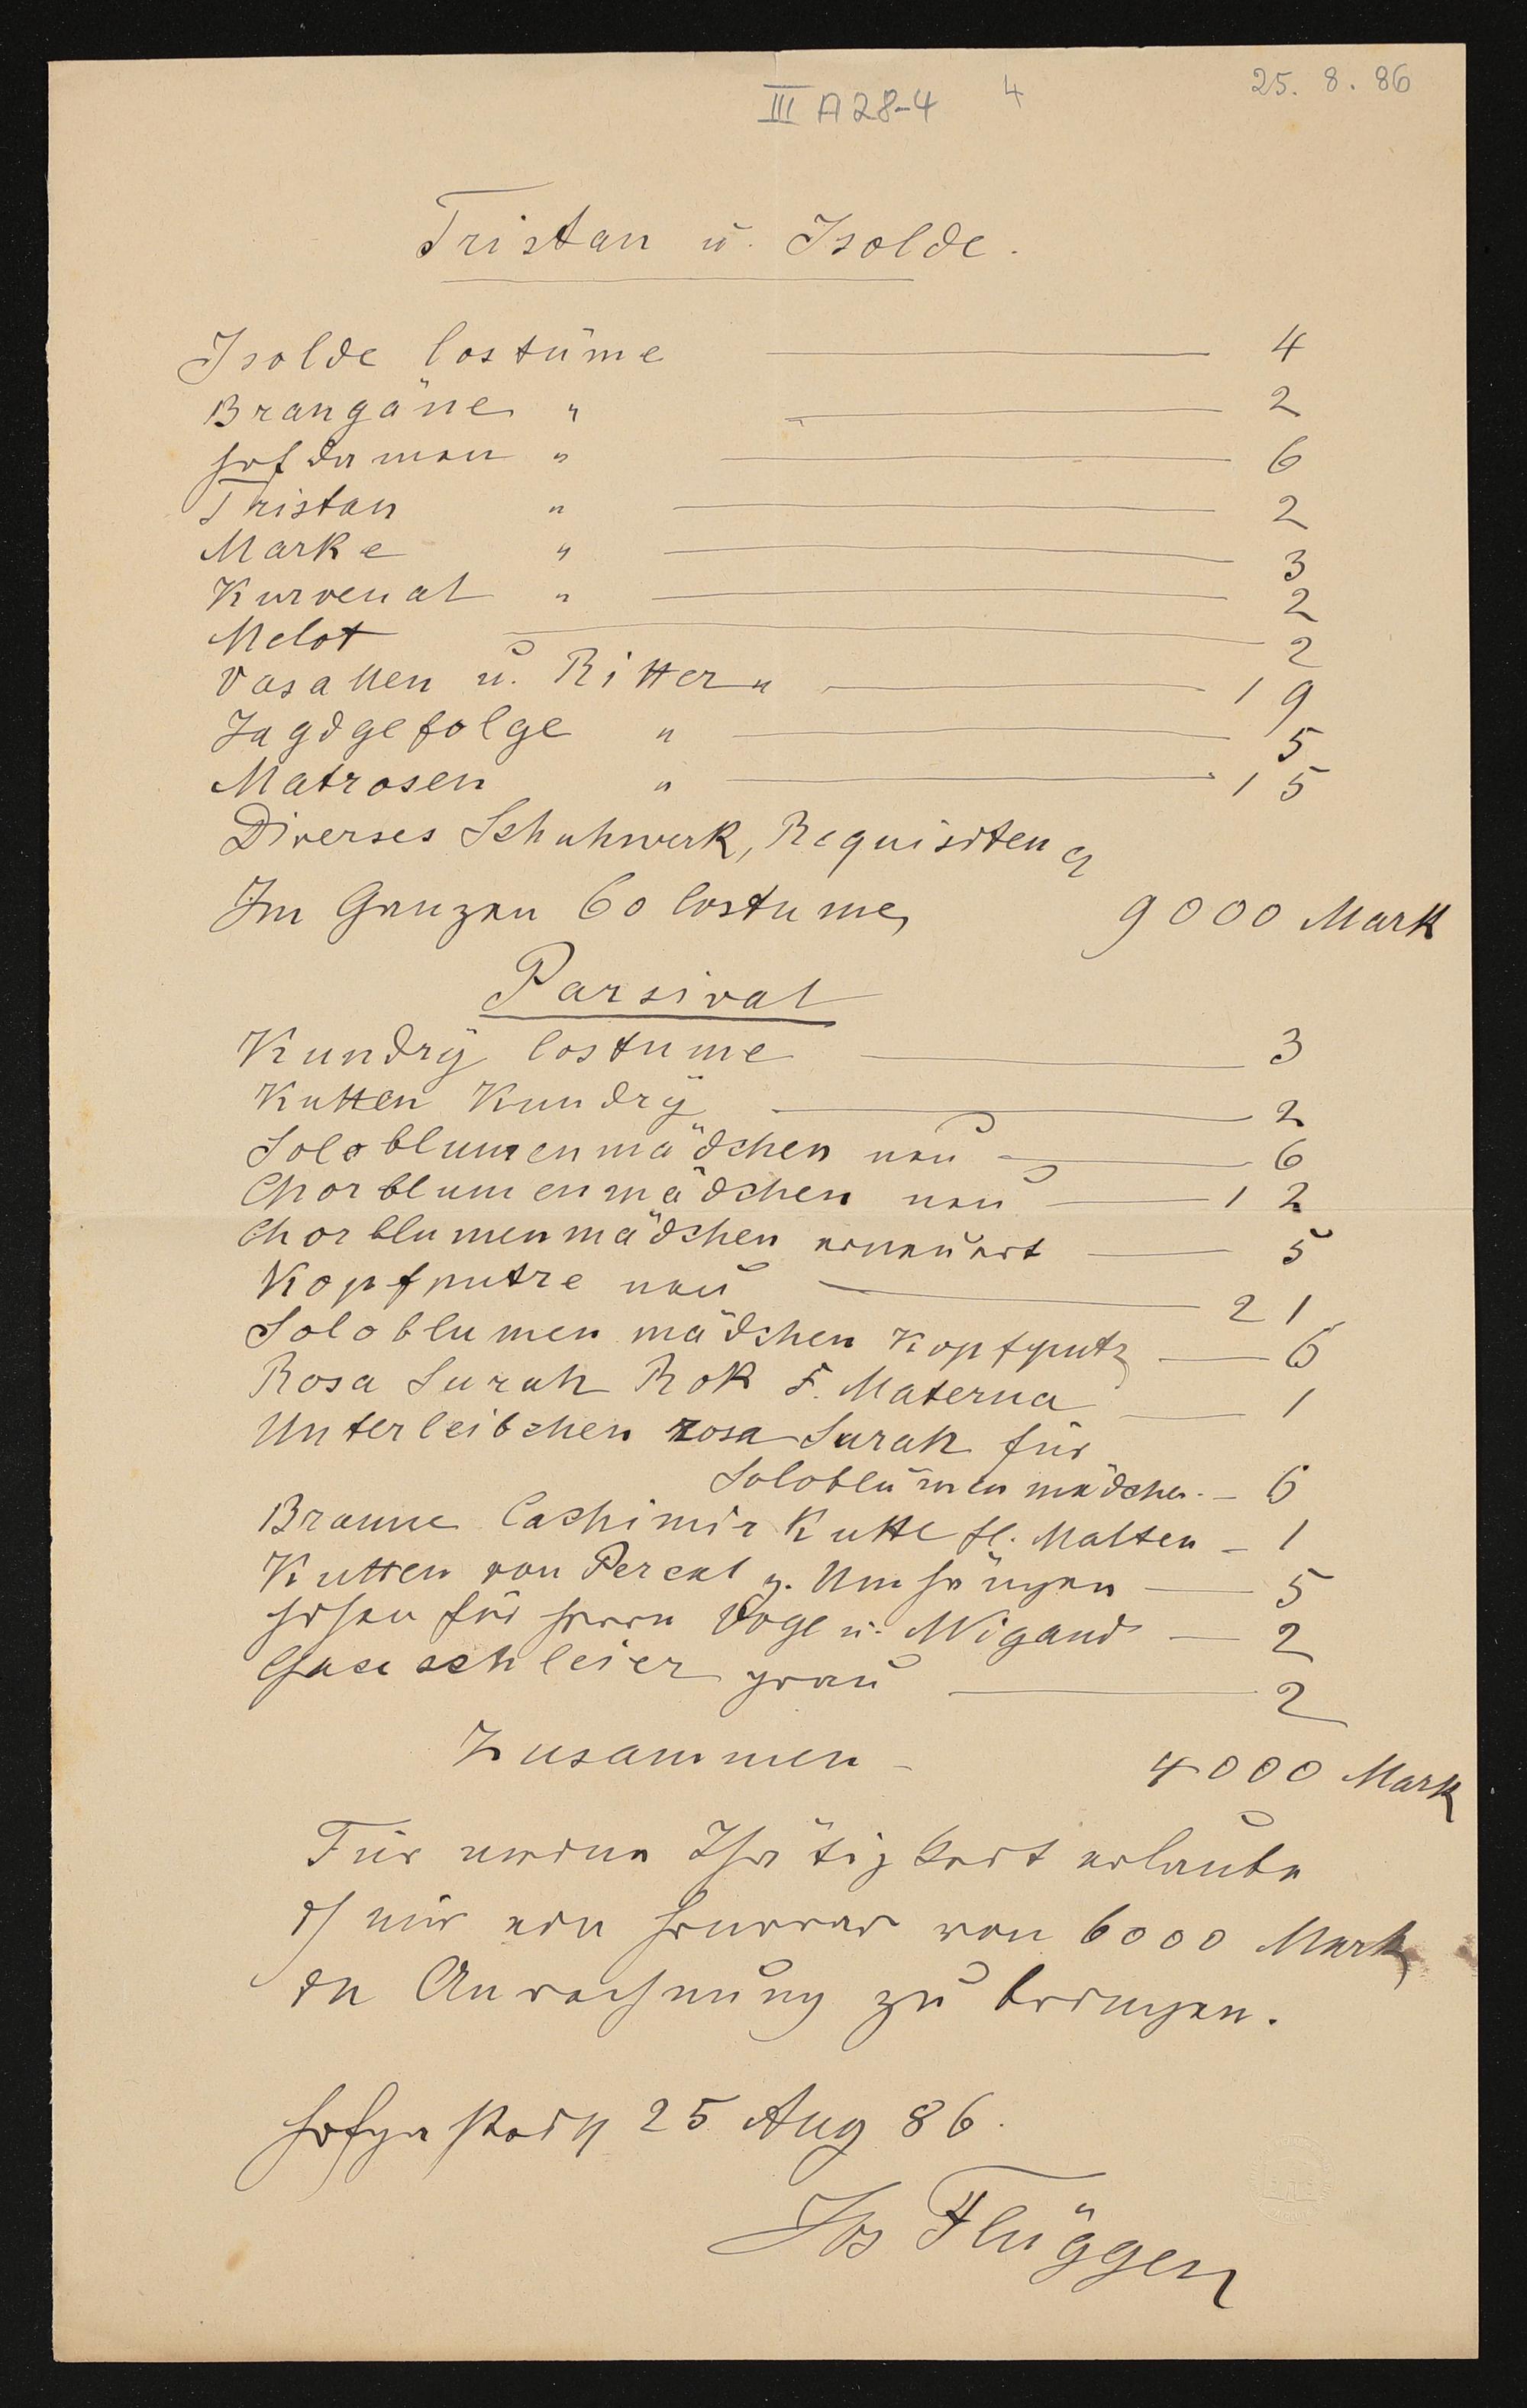 III A 28-4 4 25. 8. 86
Tristan u. Isolde.
Isolde Costüme 4
Brangäne " 2
Hofdamen " 6
Tristan " 2
Marke " 3
Kurvenal " 2
Melot 2
Vasallen u. Ritter " 19
Jagdgefolge " 5
Matrosen " 15
Diverses Schuhwerk, Requisiten
Im Ganzen 60 Costume, 9000 Mark
Parsival
Kundrÿ Costume 3
Kutten Kundrÿ 2
Soloblumenmädchen neu 6
Chorblumenmädchen neu 12
Chorblumenmädchen erneuert 5
Kopfputze neu 21
Soloblumenmädchen Kopfputz 6
Rosa Surah Rok F. Materna 1
Unterleibchen rosa Surah für
Soloblumenmädchen - 6
Braune Cachimir Kutte fl. Malten - 1
Kutten von Percal z. Umhängen 5
Hosen für Herrn Vogl u. Wigand 2
Gaseschleier grau 2
Zusammen - 4000 Mark
Für meine Thätigkeit erlaube
ich mir ein Honorar von 6000 Mark
in Anrechnung zu bringen.
Hofgastein 25 Aug 86.
Jos Flüggen